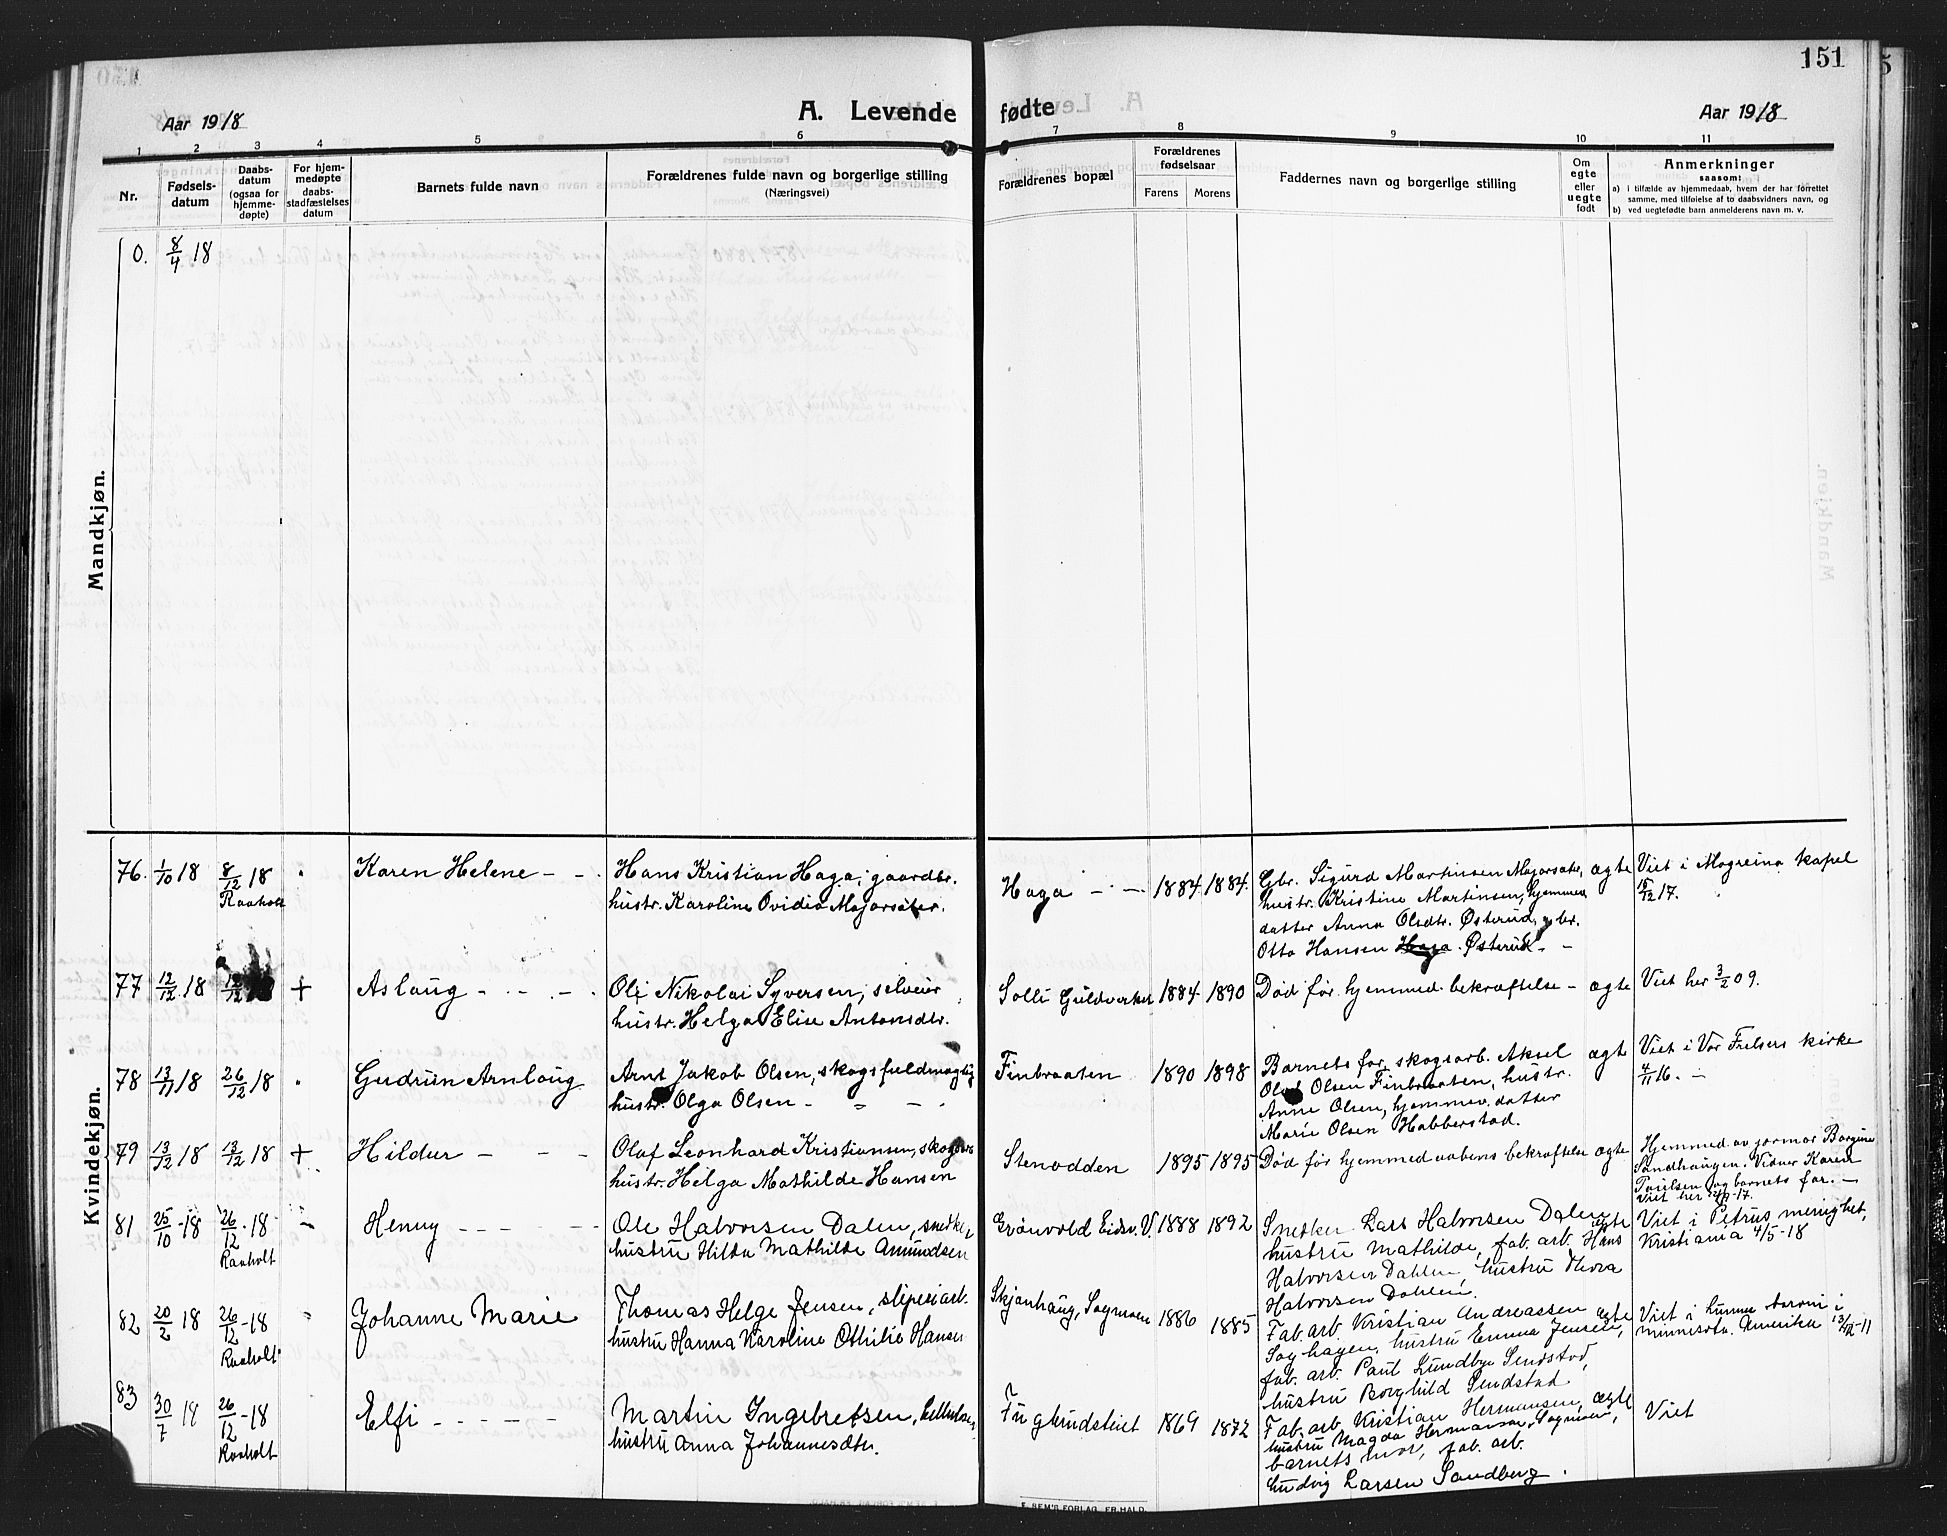 151
Aar 1918
A. Levende fødte
Aar 1918
1 2 3 4 5 6 7 8 9 10 11
Nr.
Fødsels-
datum
Daabs-
datum
(ogsaa for
hjemme-
døpte)
For hjem-
medøpte
daabs-
stadfæstelses
datum
Barnets fulde navn
Forældrenes fulde navn og borgerlige stilling
(Næringsvei)
Forældrenes bopæl
Forældrenes
fødselsaar
Farens Morens
Faddernes navn og borgerlige stilling
Om
egte
eller
uegte
født
Anmerkninger
saasom:
a) i tilfælde av hjemmedaab, hvem der har forrettet
samme, med tilføielse av to daabsvidners navn, og
b) ved uegtefødte barn anmelderens navn m. v.
Mandkjøn.
0. 8/4 18
Kvindekjøn.
76. 1/10 18 8/12 18
Raaholt
Karen Helene - -
Hans Kristian Haga, gaardbr.
hustr. Karoline Ovidia Majorsæter.
Haga - - 1884 1884.
Gbr. Sigurd Martinsen Majorsæter,
hustr. Kristine Martinsen, hjemmev.
datter Anna Olsdtr. Østerud, gbr.
Otto Hansen Haga Østerud - -
ægte
Viet i Magreina kapel
15/12 17.
77 12/12 18 12/12 18 +
Aslaug - - -
Ole Nikolai Syversen, selveier
hustr. Helga Elise Antonsdtr.
Solli Guldverket 1884 1890
Død før hjemmed. bekræftelse - ægte
Viet her 3/2 09.
78 13/11 18 26/12 18
Gudrun Arnlaug
Arnt Jakob Olsen, skogsfuldmægtig
hustr. Olga Olsen - " - "
Finbraaten 1890 1898
Barnets far, skogsarb. Aksel
Olaf Olsen Finbraaten, hustr.
Anne Olsen, hjemmev. datter
Marie Olsen Habberstad.
ægte
Viet i Vor Frelsers kirke
4/11 16. -
79 13/12 18 13/12 18 +
Hildur - - -
Olaf Leonhard Kristiansen,
hustr. Helga Mathilde Hansen
Stenodden 1895 1895
Død før hjemmedaabens bekræftelse ægte
Hjemmed. av jormor Borgine
Sandhaugen. Vidner Karen
og barnets far. -
Viet her
81 25/10 - 18 26/12 - 18
Raaholt
Henny - - - -
Ole Halvorsen Dalen, snekker,
hustru Hilda Mathilde Amundsen
Grønvold Eidsv. V. 1888 1892
Snekker Lars Halvorsen Dalen
hustru Mathilde, fab. arb. Hans
Halvorsen Dahlen, hustru Thora
Halvorsen Dahlen.
ægte
Viet i Petrus menighet,
Kristiania 4/5 - 18
82 20/2 18 26/12 - 18
Raaholt
Johanne Marie
Thomas Helge Jensen, sliperiarb.
hustru Hanna Karoline Ottilie Hansen
Skjønhaug, Sagmoen 1886 1885
Fab. arb. Kristian Andreassen
Saghagen, hustru Emma Jensen,
fab. arb. Paul Lundbye Sendstad,
hustru Borghild Sendstad
ægte
Viet i
Minnesota. Amerika 13/12 - 11
83 30/7 18 26/12 - 18
Raaholt
Elfi - - - -
Martin Ingebretsen,
hustru Anna Johannesdtr.
Fuglundsteiet 1869 1872
Fab. arb. Kristian Hermansen,
hustru Magda Hermansen, Sagmoen,
barnets mor, fab. arb.
Ludvig Larsen Sandberg.
ægte
Viet
E. SEM'S FORLAG, FR.HALD.